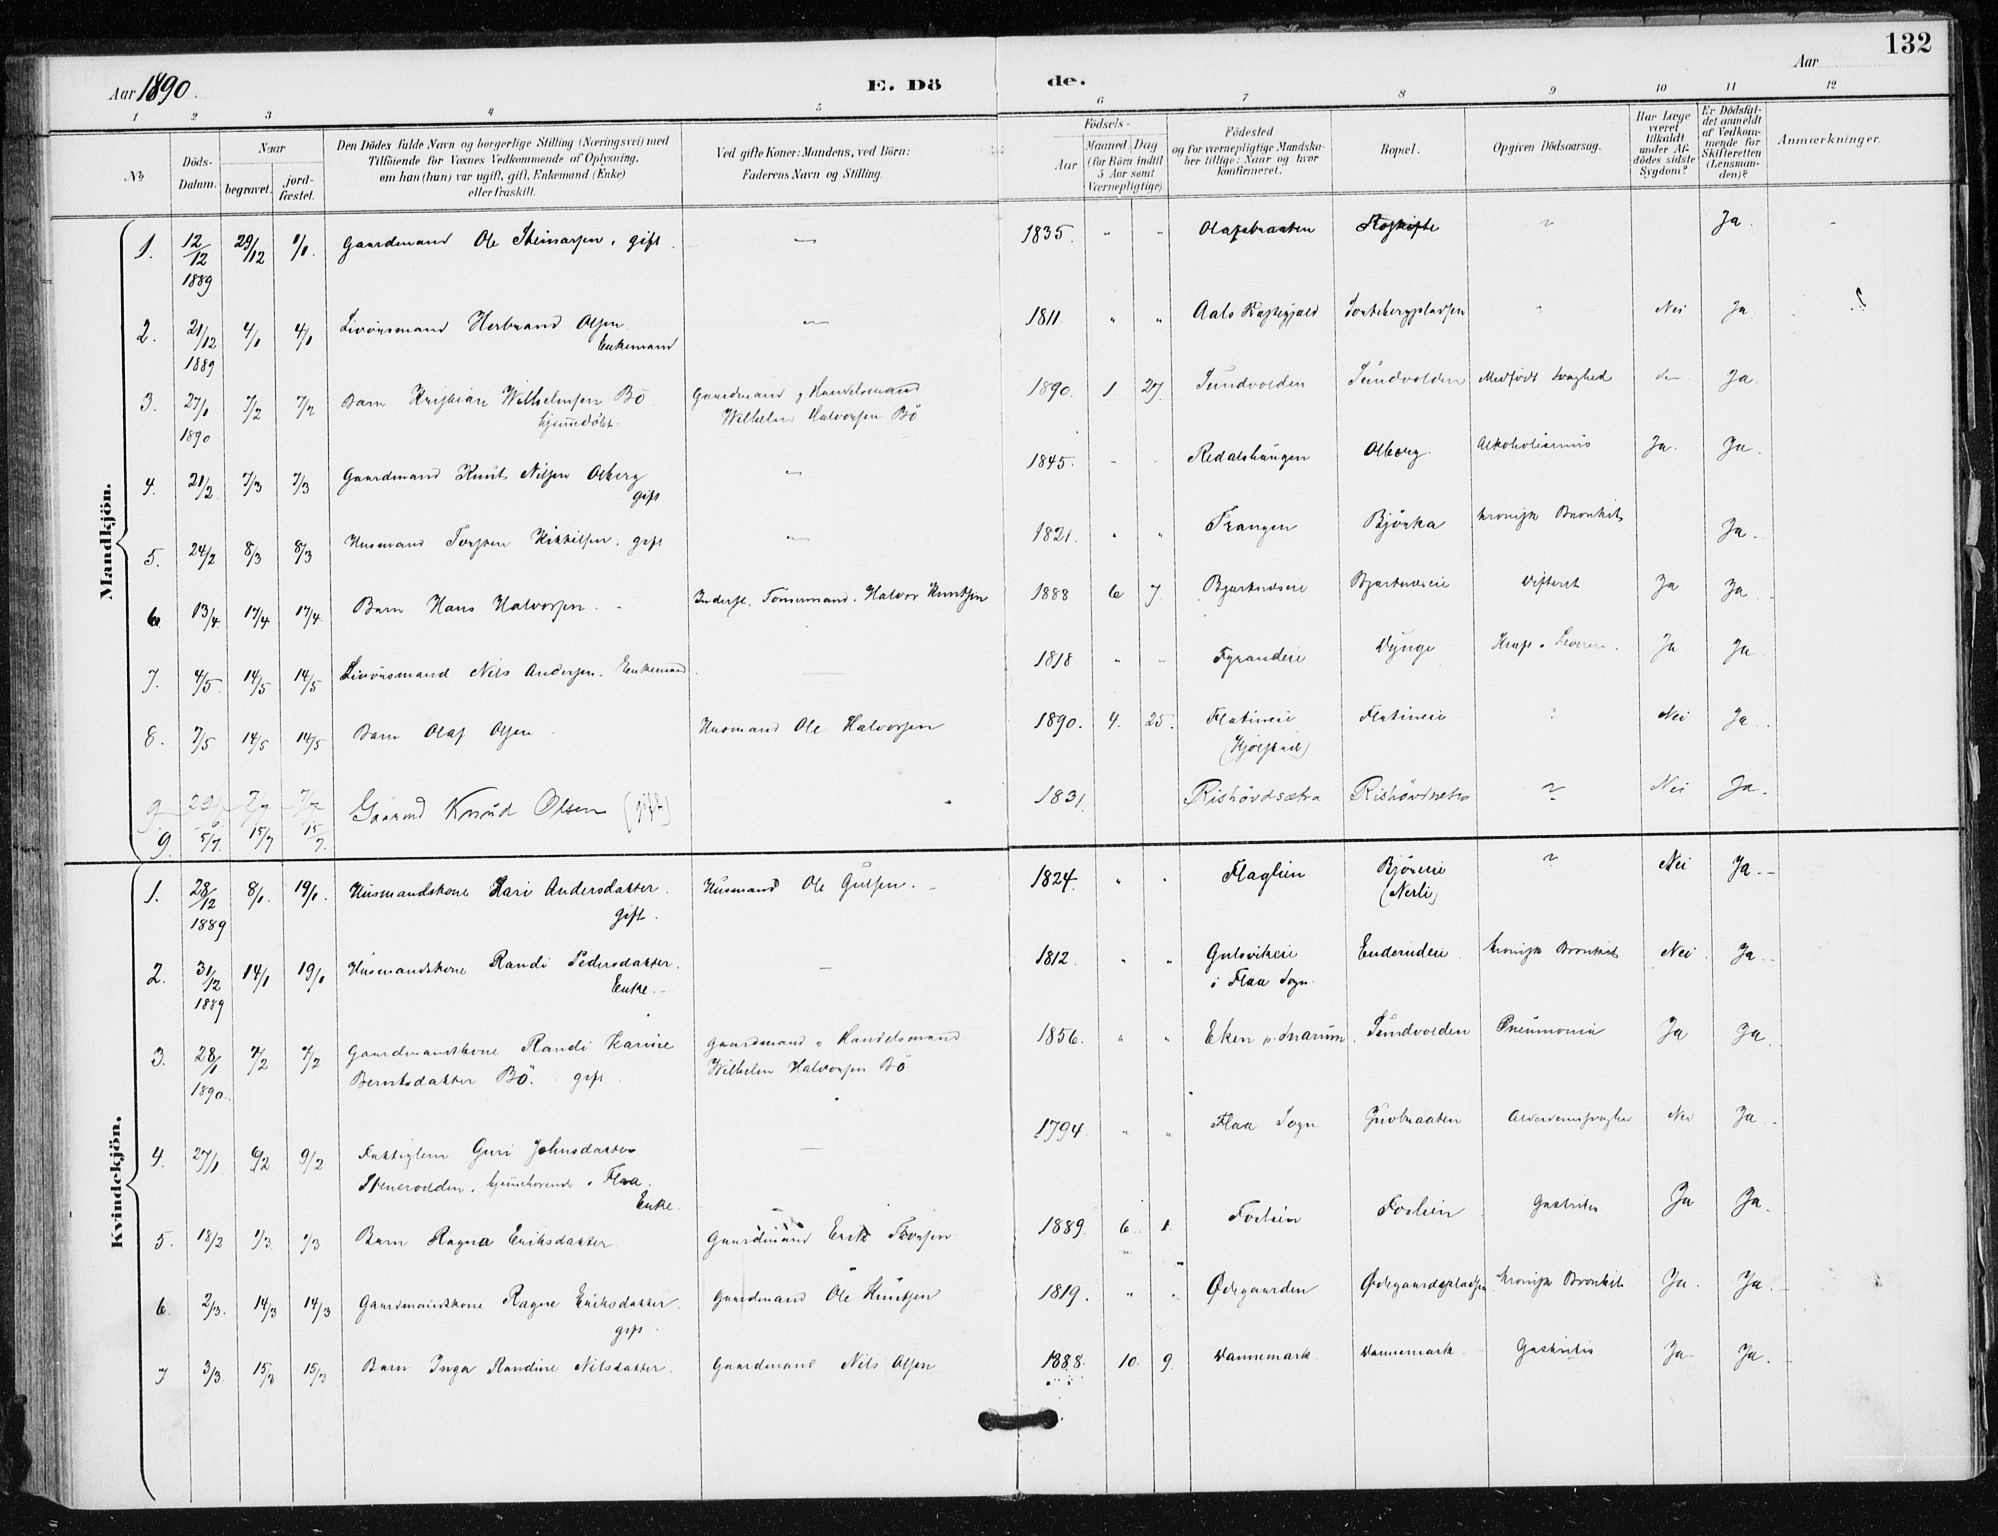 132
Aar 1890.
E. Dö
de.
Aar
1 2 3 4 5 6 7 8 9 10 11 12
No
Döds-Datum.
Naar
begravet.
jord-fæstet.
Den Dödes fulde Navn og borgerlige Stilling (Næringsvei) med
Tilföiende for Voxnes Vedkommende af Oplysning,
om han (hun) var ugift, gift, Enkemand (Enke)
eller fraskilt.
Ved gifte Koner: Mandens, ved Börn:
Faderens Navn og Stilling.
Födsels-
Aar
Maaned Dag
(for Börn indtil
5 Aar samt
Værnepligtige).
Födested
og for værnepligtige Mandska-
ber tillige: Naar og hvor
konfirmeret.
Bopæl.
Opgiven Dödsaarsag.
Har Læge
været
tilkaldt
under Af-
dödes sidste
Sygdom?
Er Dödsfal-
det anmeldt
af Vedkom-
mende for
Skifteretten
(Lensman-
den)?
Anmærkninger.
Mandkjön.
1. 12/12 1889 29/12 1/1. Gaardmand Ole Steinarsen, gift. 1835. " " Olafsbraaten ? Ja.
2. 21/12 1889 4/1 4/1 Livörsmand Herbrand Olsen 1811 " " Aals Præstegjeld Nei Ja
Enkemand
3. 27/1 1890 7/2 7/2 Barn Kristian Wilhelmsen Bö Gaardmand, Handelsmand 1890. 1 27. Sundvolden Sundvolden Medfödt svaghed Ja.
hjemmedöbt. Wilhelm Halvorsen Bö
4. 21/2. 7/3 7/3 Gaardmand Knut Nilsen Olberg 1845. Redalshaugen Olberg. Alkoholismus Ja. Ja.
gift
5. 24/2 8/3 8/3 Husmand Torsten Kittilsen. gift 1821. " " Trangen Björka kronisk Bronkit Ja.
6. 13/4. 17/4 17/4. Barn Hans Halvorsen. Inderst. Tömmermand. Halvor Knutsen 1888 6 7. Difterit Ja Ja
7. 4/5. 14/5 14/5 Livörsmand Nils Andersen. Enkemand 1818 " " Kræft i Leveren. Ja Ja
8. 7/5 14/5 14/5 Barn Olaf Olsen Husmand Ole Halvorsen 1890. 4. 25. Flatineie Flatineie ? Nei Ja
9 7/7 7/7
9. 5/7. 15/7 15/7. Gaarmd Knud Olsen (gift) 1831 Rishövdsætra Rishövdsetra ? Nei Ja.
Kvindekjön.
1. 28/12 1889 8/1. 19/1. Husmandskone Kari Andersdatter. Husmand Ole Gulsen. 1824. " " Flaglien Björeie ? Nei Ja.
gift. (Nerli)
2. 31/12 1889 14/1 19/1 Husmandskone Randi Pedersdatter. 1812. " " Gulsvikeie Enderudeie kronisk Bronkit Nei Ja.
Enke. i Flaa Sogn.
3. 28/1 1890. 7/2 7/2 Gaardmandskone Randi Karine Gaardmand, Handelsmand 1856. " " Eken p. Snarum. Sundvolden Pneumonia Ja Ja.
Berntsdatter Bö. gift Wilhelm Halvorsen Bö
4. 27/1 6/2 9/2 Fattiglem Guri Johnsdatter 1794. " " Flaa Sogn Alderdomssvaghed Nei Ja.
hjemmehörende i Flaa.
Enke.
5. 18/2 1/3. 1/3 Barn Ragna Eriksdatter Gaardmand Erik 1889. 6 1. Foslien Foslien Gastritis Ja Ja.
6. 2/3. 14/3 14/3 Gaardmandskone Ragne Eriksdatter. Gaardmand Ole Knutsen 1819. " " Ödegaarden Ödegaardspladsen kronisk Bronkit Ja. Ja.
gift.
7 3/3. 15/3 15/3 Barn Inga Randine Nilsdatter. Gaardmand Nils Olsen 1888. 10. 9. Dannemark. Dannemark Gastritis Ja. Ja.